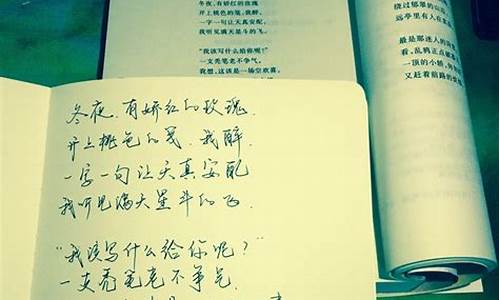 冬夜，有娇红的玫瑰
开上桃色的笺，我醉，
一字一句让天真安配，
我听见满天星斗的飞。
“我该写什么给你呢？”
一支秃笔老不争气，
我想，这该是一场空欢喜，
绕过郁翠的山
远亭里有人在
最是那迷人的
看，乱鸦正点
一顶的小轿，
又赶着前路的
冬夜,有娇红的玫瑰
开上桃色的笺,我醉,
一字一句让天真安配
我听见满天星斗的飞.
“我该写什么给你呢?”
一支秃笔老不争气.